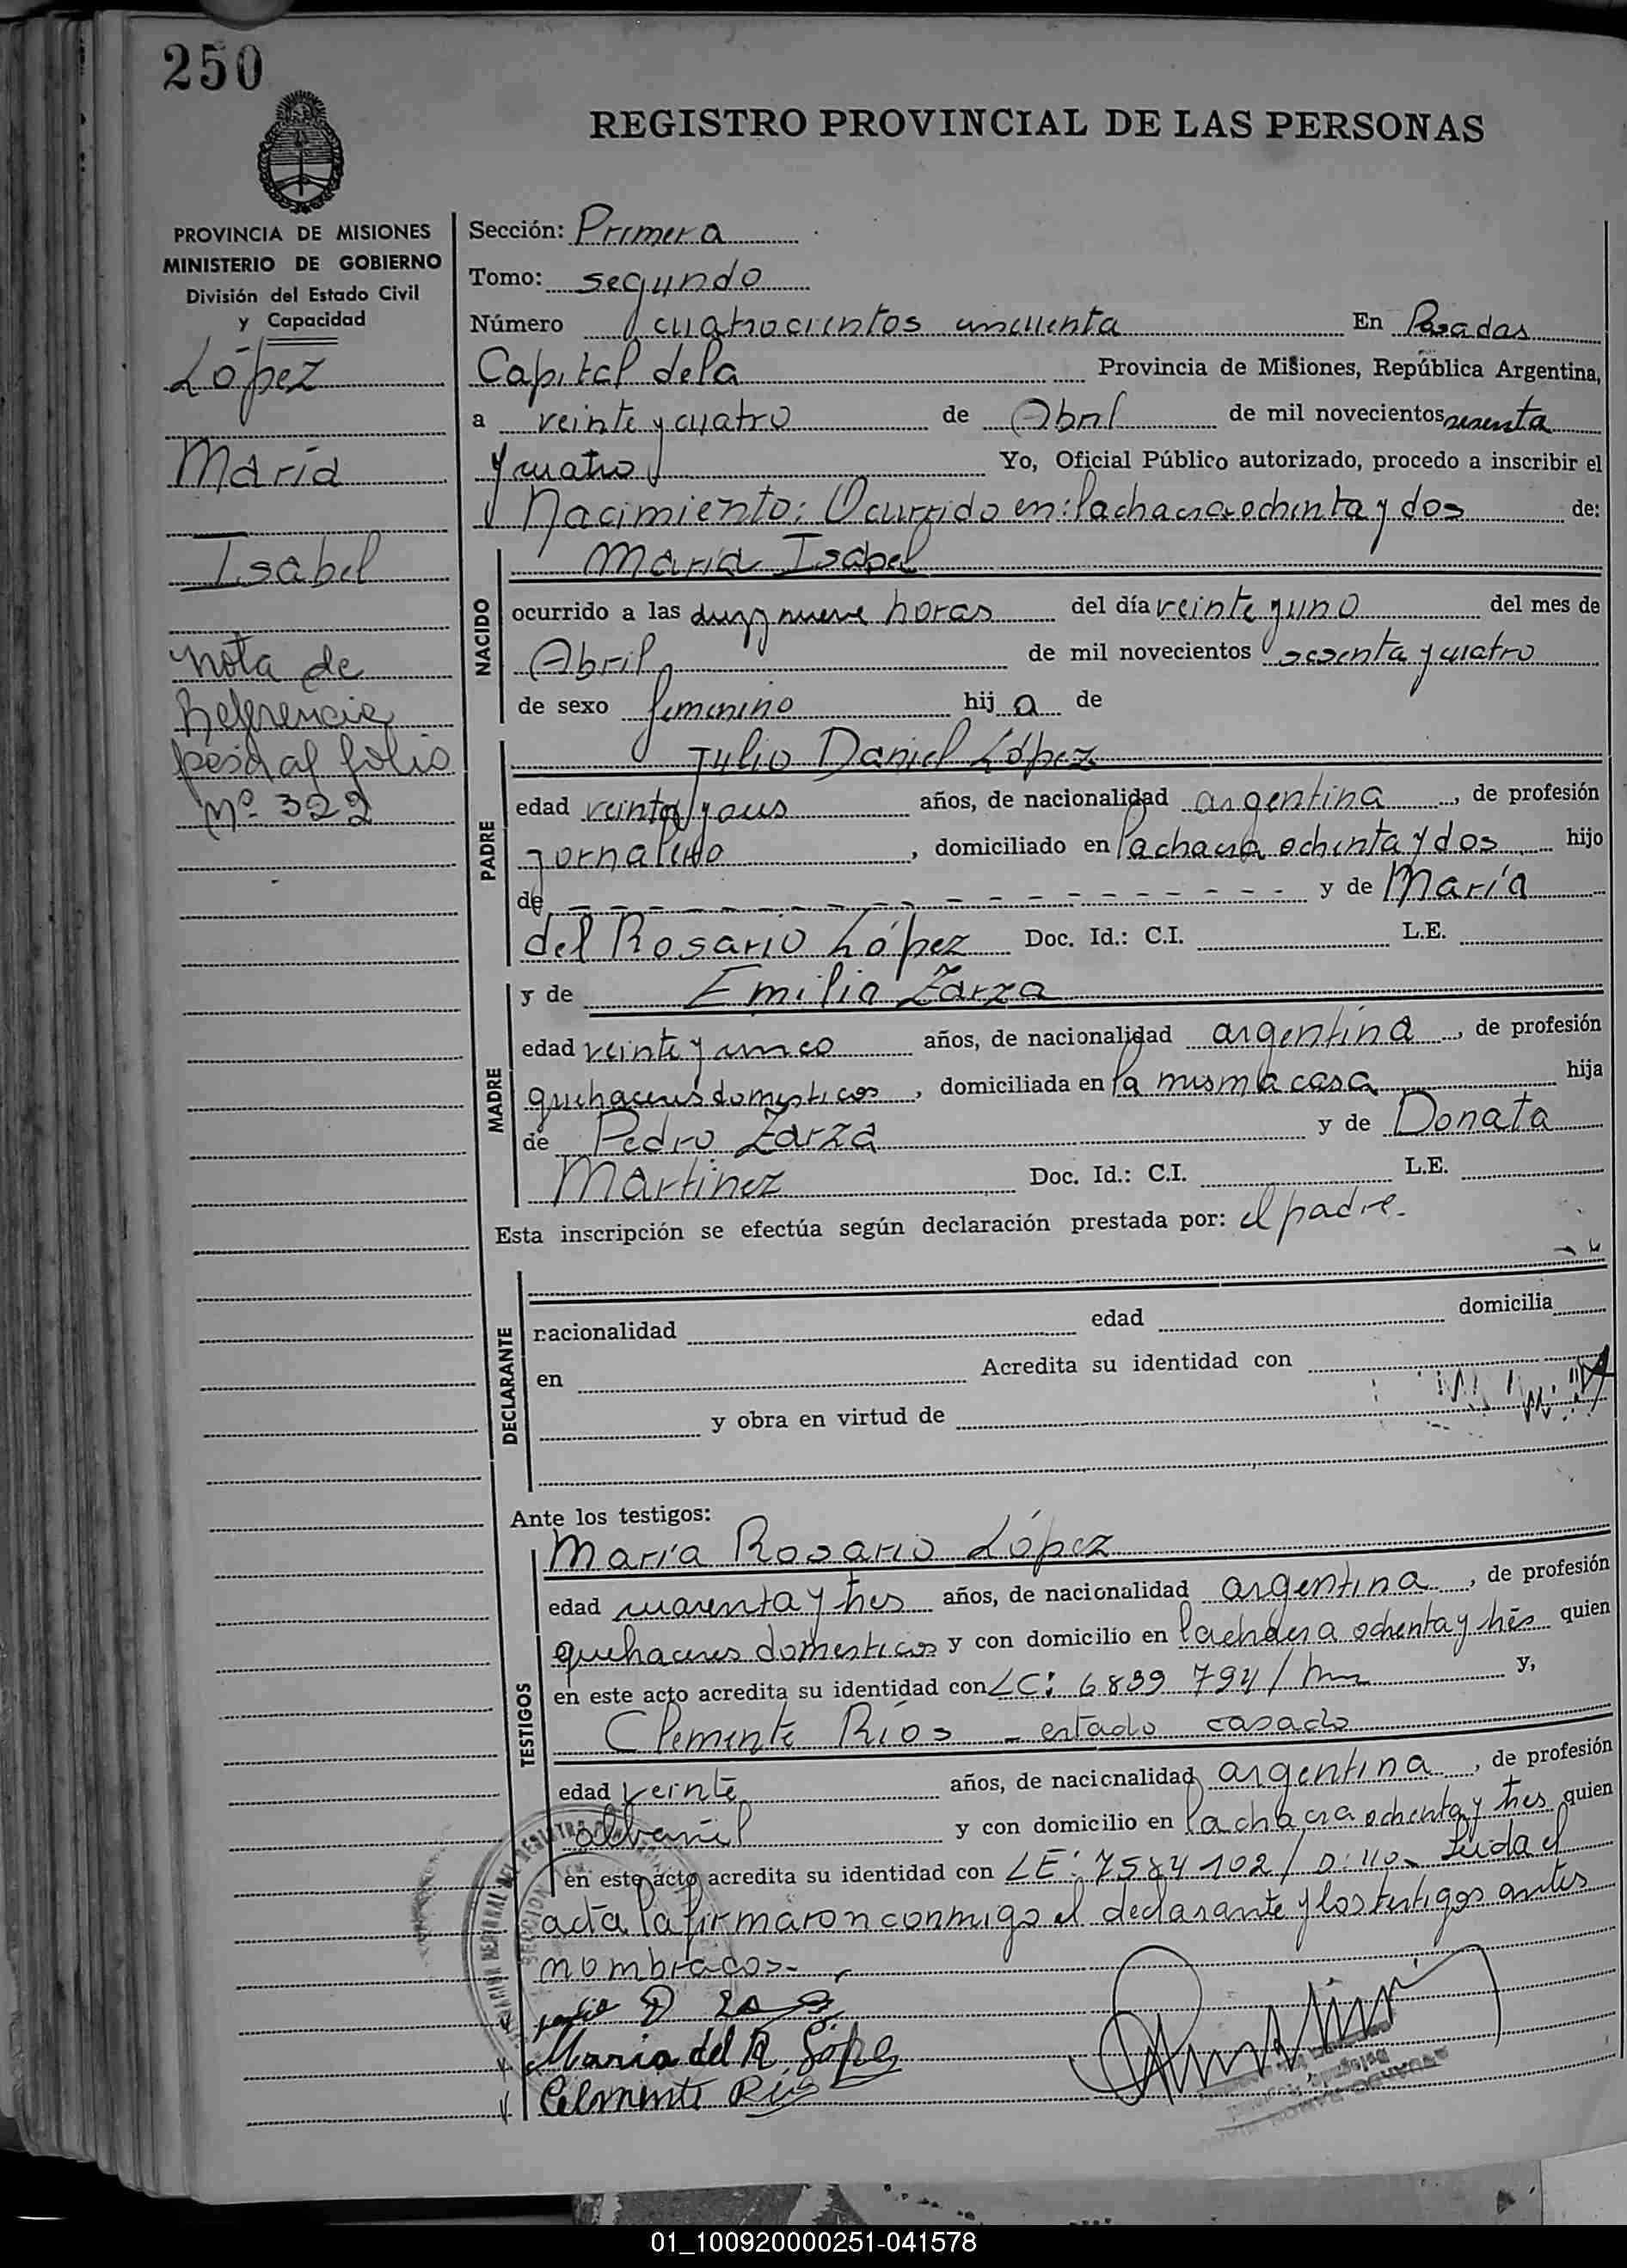 250
REGISTRO PROVINCIAL DE LAS PERSONAS
PROVINCIA DE MISIONES
MINISTERIO DE GOBIERNO
División del Estado Civil
y Capacidad
López
María
Isabel
nota de
Referencia
pasa al folio
Nº 322
Sección: Primera
Tomo: segundo
Número cuatrocientos cincuenta En Posadas
Capital de la Provincia de Misiones, República Argentina,
a veinte y cuatro de Abril de mil novecientos sesenta
y cuatro Yo, Oficial Público autorizado, procedo a inscribir el
Nacimiento: Ocurrido en: la chacra ochenta y dos de:
NACIDO
María Isabel
ocurrido a las diez y nueve horas del día veinte y uno del mes de
Abril de mil novecientos sesenta y cuatro
de sexo femenino hij a de
PADRE
Julio Daniel López
edad veinte y años, de nacionalidad argentina, de profesión
jornalero, domiciliado en la chacra ochenta y dos hijo
de - - - - - - - - - - - - - - - y de María
del Rosario López Doc. Id.: C.I. L.E.
MADRE
y de Emilia Zarza
edad veinte y cinco años, de nacionalidad argentina, de profesión
quehaceres domesticos, domiciliada en la misma casa hija
de Pedro Zarza y de Donata
Martinez Doc. Id.: C.I. L.E.
Esta inscripción se efectúa según declaración prestada por: el padre.
DECLARANTE
nacionalidad edad domicilia
en Acredita su identidad con
y obra en virtud de
Ante los testigos:
TESTIGOS
María Rosario López
edad cuarenta y tres años, de nacionalidad argentina, de profesión
quehaceres domesticos y con domicilio en la chacra ochenta y tres quien
en este acto acredita su identidad con LC: 6839 794/ y,
Clemente Ríos - estado casado
edad veinte años, de nacionalidad argentina, de profesión
albañil y con domicilio en la chacra ochenta y tres quien
en este acto acredita su identidad con LE: 7584102/ Leida el
acta la firmaron conmigo el declarante y los testigos antes
nombrados-
Maria del R. López
Celmente Rios
01_100920000251-041578